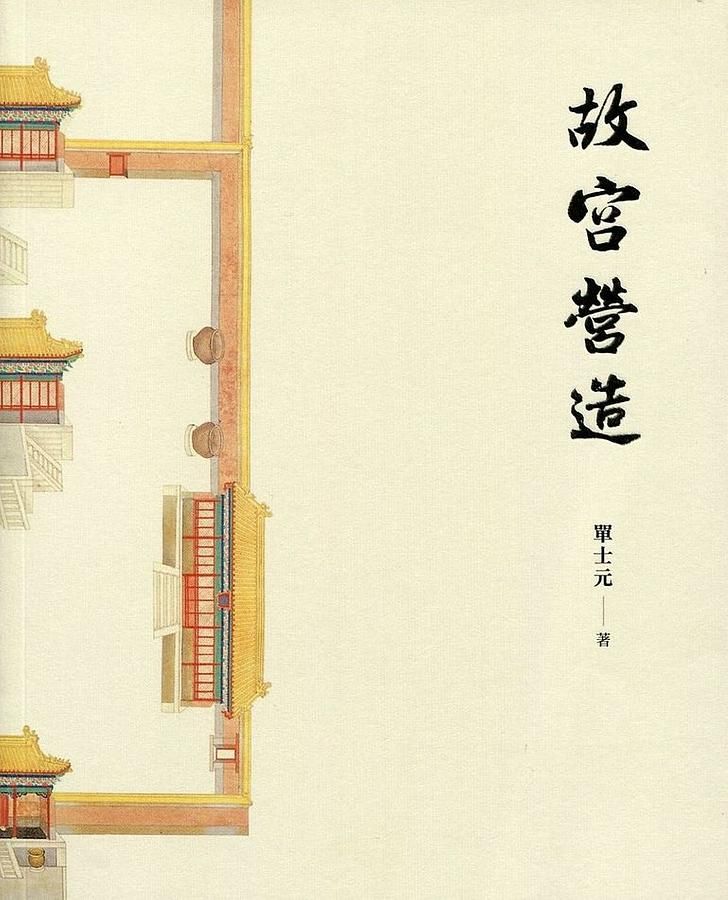 故宮營造
單士元——著